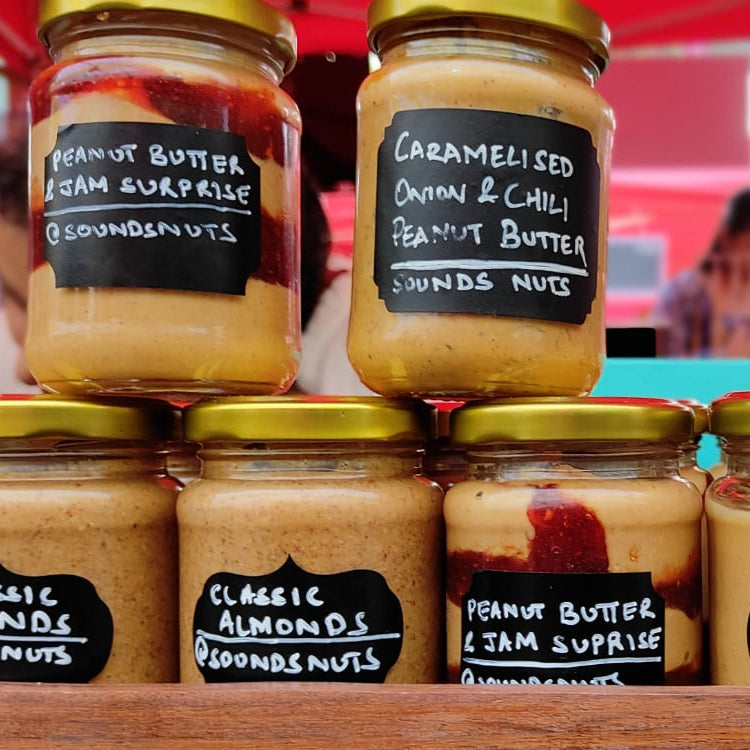 PEANUT BUTTER
& JAM SURPRISE
@SOUNDSNUTS
CARAMELISED
ONION & CHILI
PEANUT BUTTER
SOUNDS NUTS
SSIC
NDS
NUTS
CLASSIC
ALMONDS
@SOUNDSNUTS
PEANUT BUTTER
& JAM SUPRISE
@SOUNDSNUTS